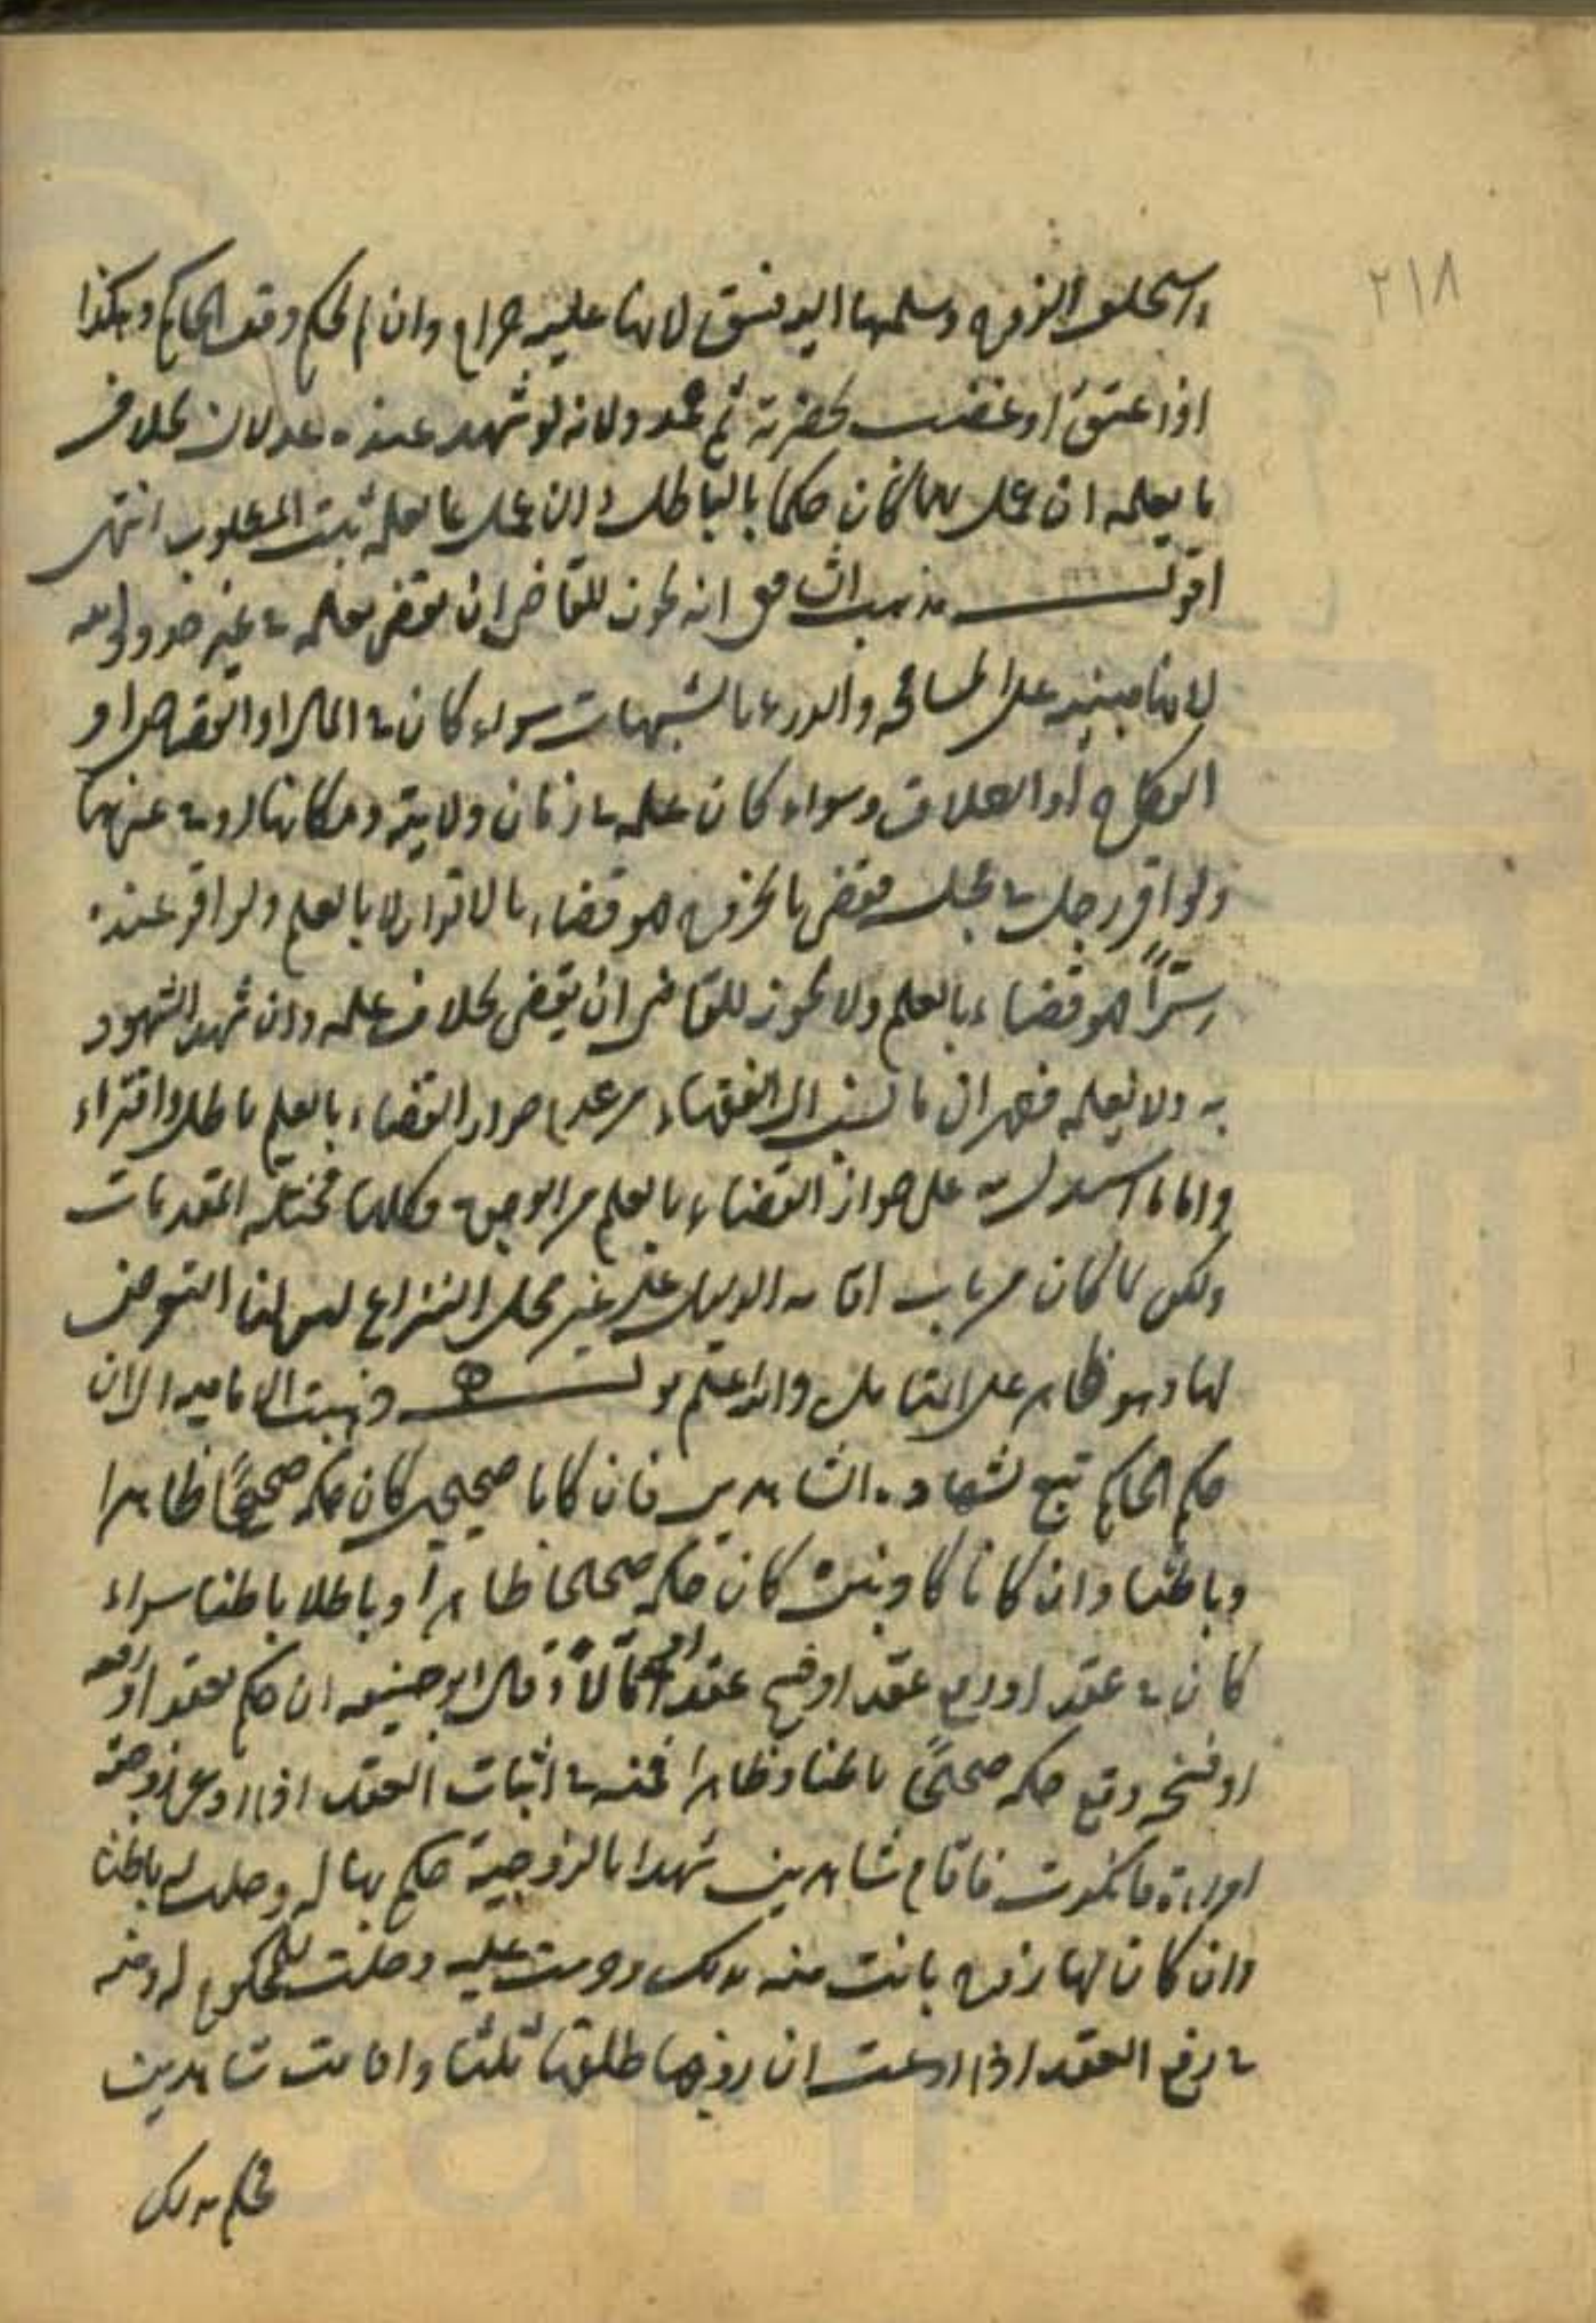 ٢١٨
واستحلف الزوج وسلمها اليه فسق لانها عليه حرام وان لم يحكم وقف الحاكم وهكذا
اذا عتق او غصب بحضرته ثم جحد ولانه لو شهد عنده عدلان بخلاف
ما يعلمه ان عمل بهما كان حكما بالباطل وان عمل بما يعلمه ثبت المطلوب انتهى
اقول مذهب الشافعي انه يجوز للقاضي ان يقضي بعلمه في غير حدود الله
لانها مبنية على المسامحة والدرء بالشبهات سواء كان في المال او القصاص او
النكاح او الطلاق وسواء كان علمه في زمان ولايته ومكانها او في غيرهما
ولو اقر رجل في مجلس فقضى بالحق فهو قضاء بالاقرار لا بالعلم ولو اقر عنده
سرّاً فهو قضاء بالعلم ولا يجوز للقاضي ان يقضي بخلاف علمه وان شهد الشهود
به ولا يعلمه فظهر ان ما نسب الى الفقهاء من عدم جواز القضاء بالعلم باطل وافتراء
واما ما استدل به على جواز القضاء بالعلم من الوجوه فكلها مختلة المقدمات
ولكن لما كان من باب اقامة الدليل على غير محل النزاع ليس لنا التعرض
لها وهو ظاهر على المتأمل والله اعلم قوله ذهبت الامامية الى ان
حكم الحاكم تبع لشهادة الشاهدين فان كانا صحيحين كان حكمه صحيحاً ظاهرا
وباطنا وان كانا كاذبين كان حكمه صحيحا ظاهرا وباطلا باطنا سواء
كان في عقد او رفع عقد او فسخ عقد او مالاً وقال ابو حنيفه ان حكم بعقد او رفعه
او فسخه وقع حكمه صحيحاً باطنا وظاهرا فمنه في اثبات العقد اذا ادعى زوجية
امراة فانكرت فاقام شاهدين شهدا بالزوجية حكم بها له وحلت له باطنا
وان كان لها زوج بانت منه بذلك وحرمت عليه وحلت للمحكوم له ومنه
في رفع العقد اذا ادعت ان زوجها طلقها ثلثا واقامت شاهدين
فحكم بذلك